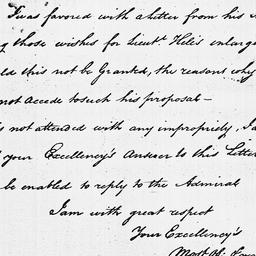 I was favored with a letter from his
those wishes for Lieut. Hele's enlarg
ld this not be Granted, the reasons why
not accede to such his proposal –
s not attended with any impropriety, I
your Excellency's Answer to this Letter
be enabled to reply to the Admiral
I am with great respect
Your Excellency's
Most Ob.